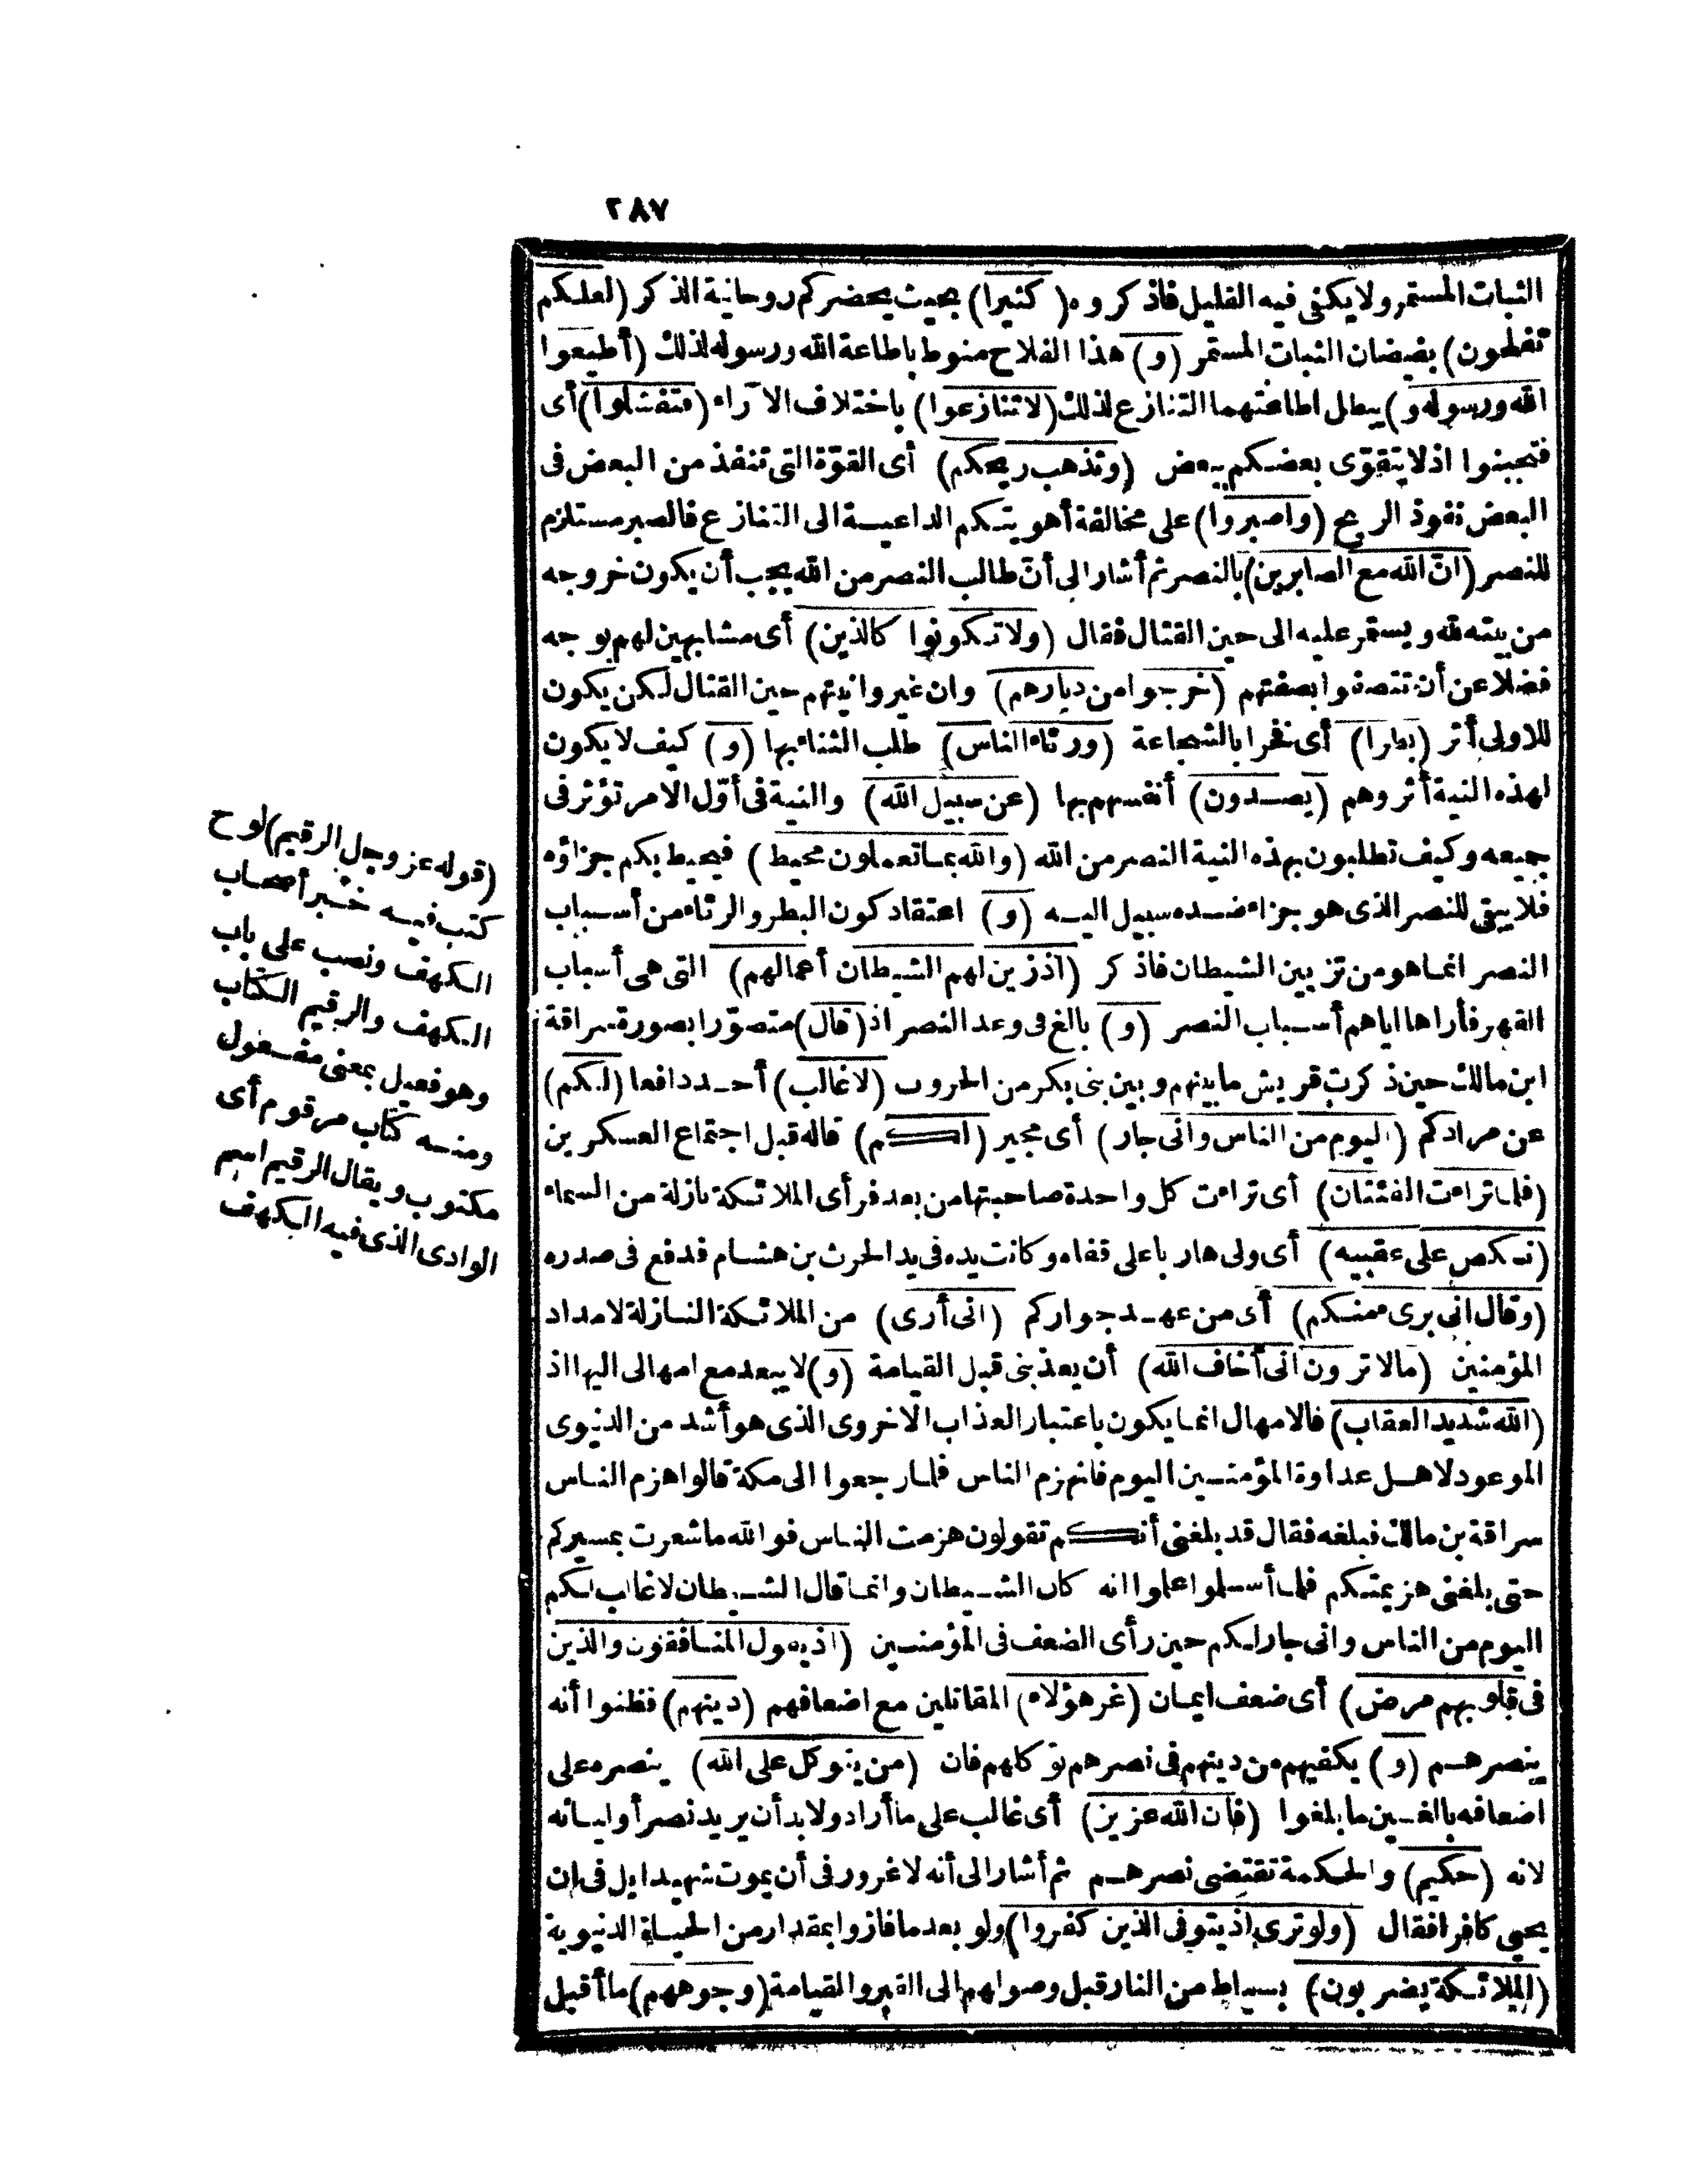 ٢٨٧
الثبات المستمر ولا يكفى فيه القليل فاذكروه (كثيرا) بحيث يحضركم روحانية الذكر (لعلكم
تفلحون) بفيضان الثبات المستمر (و) هذا الفلاح منوط باطاعة الله ورسوله لذلك (أطيعوا
الله ورسوله و) يبطل اطاعتهما التنازع لذلك (لاتنازعوا) باختلاف الآراء (فتفشلوا) أى
فتجبنوا اذلا يتقوّى بعضكم ببعض (وتذهب ريحكم) أى القوّة التى تنفذ من البعض فى
البعض نفوذ الريح (واصبروا) على مخالفة أهويتكم الداعية الى التنازع فالصبر مستلزم
للنصر (انّ الله مع الصابرين) بالنصر ثم أشار الى أنّ طالب النصر من الله يجب أن يكون خروجه
من بيته لله ويستمر عليه الى حين القتال فقال (ولاتكونوا كالذين) أى مشابهين لهم بوجه
فضلا عن أن تتصفوا بصفتهم (خرجوا من ديارهم) وان غيروا نيتهم حين القتال لكن يكون
للاولى أثر (بطرا) أى فخرا بالشجاعة (ورئاء الناس) طلب الثناء بها (و) كيف لا يكون
لهذه النية أثر وهم (يصدون) أنفسهم بها (عن سبيل الله) والنية فى أوّل الامر تؤثر فى
جميعه وكيف تطلبون بهذه النية النصر من الله (والله بما تعملون محيط) فيحيط بكم جزاؤه
فلا يبقى للنصر الذى هو جزاء ضده سبيل اليه (و) اعتقاد كون البطر والرئاء من أسباب
النصر انما هو من تزيين الشيطان فاذكر (اذ زين لهم الشيطان أعمالهم) التى هى أسباب
القهر فأراها اياهم أسباب النصر (و) بالغ فى وعد النصر اذ (قال) متصوّرا بصورة سراقة
ابن مالك حين ذكرت قريش ما بينهم وبين بنى بكر من الحروب (لاغالب) أحد دافعا (لكم)
عن مرادكم (اليوم من الناس وانى جار) أى مجير (لكم) قاله قبل اجتماع العسكرين
(فلما تراءت الفئتان) أى تراءت كل واحدة صاحبتها من بعد فرأى الملائكة نازلة من السماء
(نكص على عقبيه) أى ولى هاربا على قفاه وكانت يده فى يد الحرث بن هشام فدفع فى صدره
(وقال انى برىء منكم) أى من عهد جواركم (انى أرى) من الملائكة النازلة لامداد
المؤمنين (مالا ترون انى أخاف الله) أن يعذبنى قبل القيامة (و) لا يبعد مع امهالى اليها اذ
(الله شديد العقاب) فالامهال انما يكون باعتبار العذاب الاخروى الذى هو أشد من الدنيوى
الموعود لاهل عداوة المؤمنين اليوم فانهزم الناس فلما رجعوا الى مكة قالوا هزم الناس
سراقة بن مالك فبلغه فقال قد بلغنى أنكم تقولون هزمت الناس فوالله ما شعرت بمسيركم
حتى بلغنى هزيمتكم فلما أسلموا علموا انه كان الشيطان وانما قال الشيطان لاغالب لكم
اليوم من الناس وانى جار لكم حين رأى الضعف فى المؤمنين (اذ يقول المنافقون والذين
فى قلوبهم مرض) أى ضعف ايمان (غر هؤلاء) المقاتلين مع اضعافهم (دينهم) فظنوا أنه
ينصرهم (و) يكفيهم من دينهم فى نصرهم توكلهم فان (من يتوكل على الله) ينصره على
اضعافه بالغين ما بلغوا (فان الله عزيز) أى غالب على ما أراد ولا بد أن يريد نصر أوليائه
لانه (حكيم) والحكمة تقتضى نصرهم ثم أشار الى أنه لاغرور فى أن يموت شهيدا بل فى ان
يحيى كافرا فقال (ولو ترى اذ يتوفى الذين كفروا) ولو بعد ما فازوا بمقدار من الحياة الدنيوية
(الملائكة يضربون) بسياط من النار قبل وصولهم الى القبر والقيامة (وجوههم) ما أقبل
(قوله عز وجل الرقيم) لوح
كتب فيه خبر أصحاب
الكهف ونصب على باب
الكهف والرقيم الكتاب
وهو فعيل بمعنى مفعول
ومنه كتاب مرقوم أى
مكتوب ويقال الرقيم اسم
الوادى الذى فيه الكهف